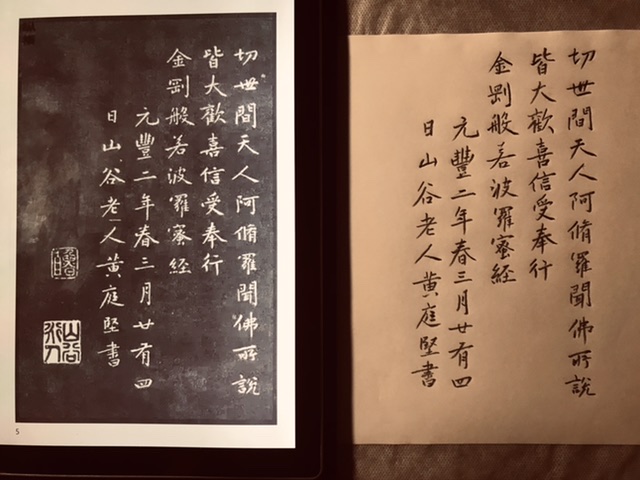 切世間天人阿脩羅聞佛所說
皆大歡喜信受奉行
金剛般若波羅蜜經
元豐二年春三月廿有四
日山谷老人黃庭堅書
5
切世間天人阿脩羅聞佛所說
皆大歡喜信受奉行
金剛般若波羅蜜經
元豐二年春三月廿有四
日山谷老人黃庭堅書